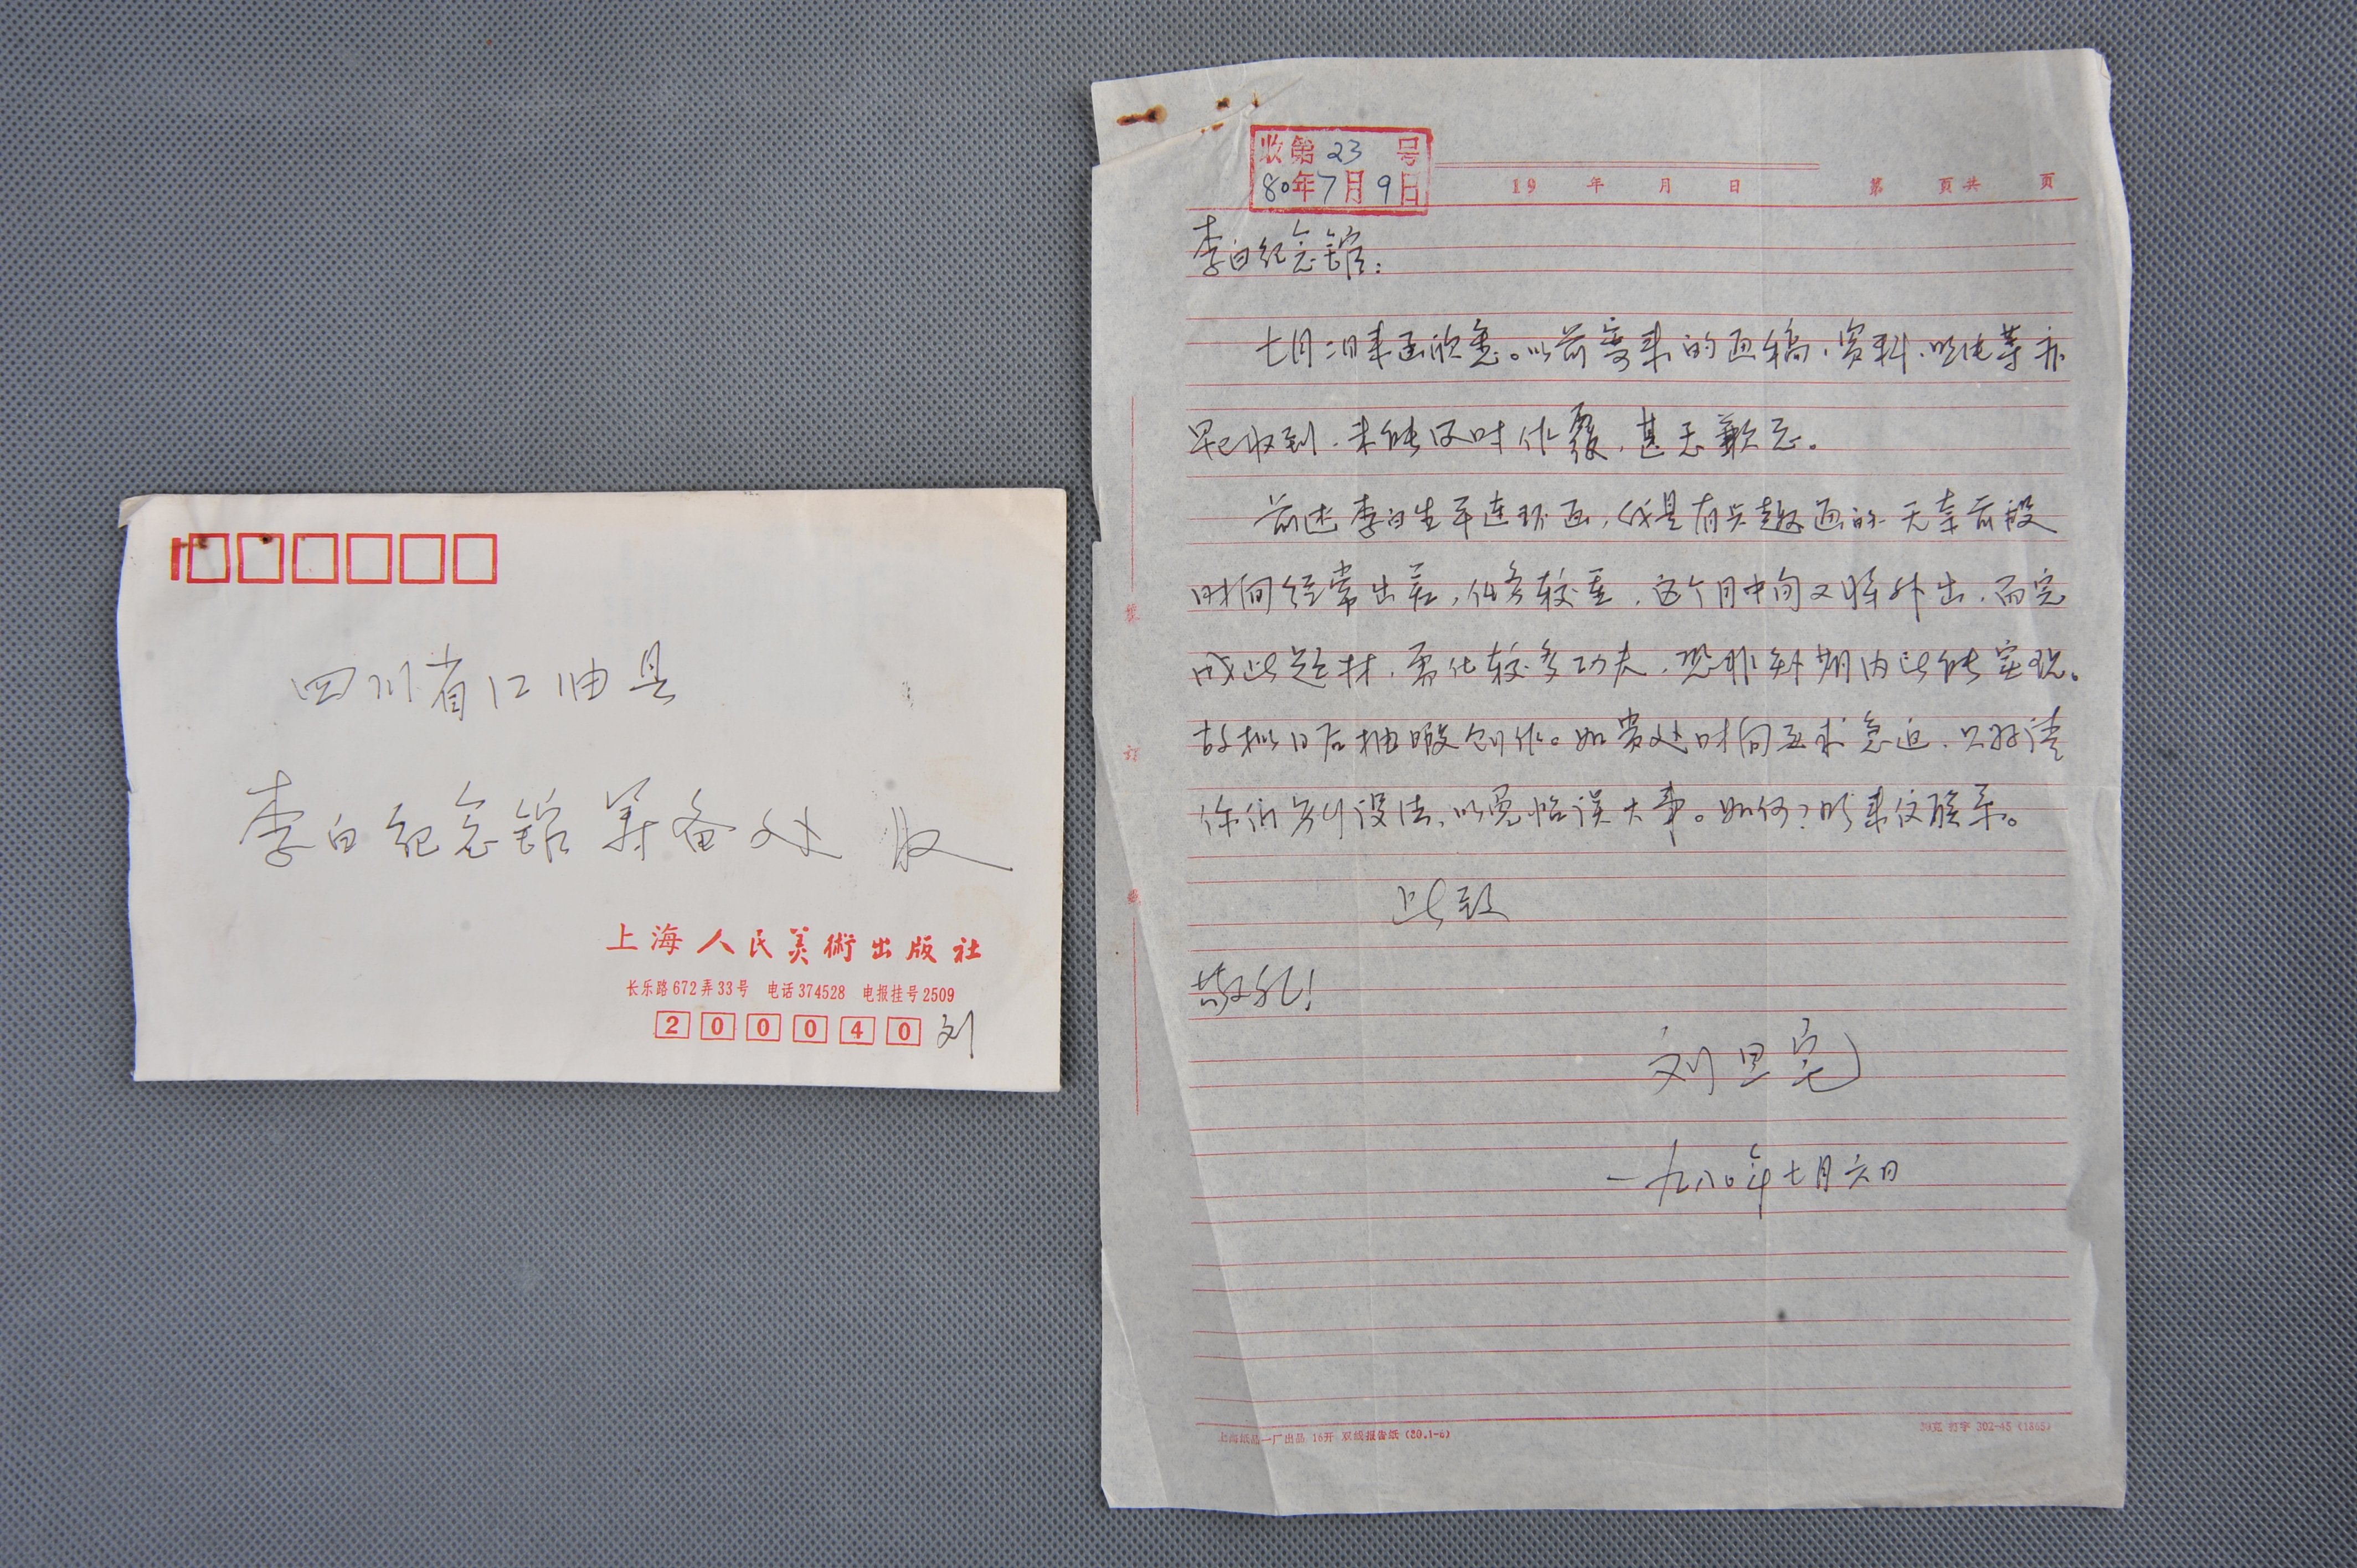 四川省江油县
李白纪念馆筹备处 收
上海人民美術出版社
长乐路672弄33号 电话374528 电报挂号2509
200040 刘
收第23号
80年7月9日
19 年 月 日 第 页共 页
李白纪念馆：
七月二日来函欣悉。以前寄来的画稿、资料、照片等亦
早已收到，未能及时作覆，甚表歉意。
前述李白生平连环画，我是有兴趣画的，无奈前段
时间经常出差，任务较重，这个月中旬又将外出，而完
成此题材，需化较多功夫，恐非短期内所能实现。
故拟日后抽暇创作。如贵处时间要求急迫，只好请
你们另行设法，以免贻误大事。如何？盼来信联系。
此致
敬礼！
刘旦宅
一九八〇年七月六日
装
订
线
上海纸品一厂出品 16开 双线报告纸 (80.1-6)